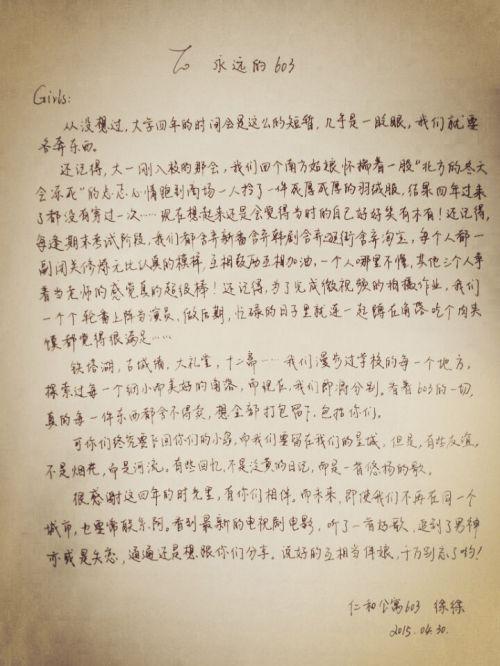 To 永远的603
Girls:
从没想过，大学四年的时间会是这么的短暂，几乎是一眨眼，我们就要
各奔东西。
还记得，大一刚入校的那会，我们四个南方姑娘怀揣着一股“北方的冬天
会冻死”的忐忑心情跑到商场一人拎了一件死厚死厚的羽绒服，结果四年过来
了都没有穿过一次……现在想起来还是会觉得当时的自己好好笑有木有！还记得，
每逢期末考试阶段，我们都舍弃新番舍弃韩剧舍弃逛街舍弃淘宝，每个人都一
副闭关修炼无比认真的模样，互相鼓励互相加油，一个人哪里不懂，其他三个人争
着当老师的感觉真的超级棒！还记得，为了完成微视频的拍摄作业，我们
一个个轮番上阵当演员，做后期，忙碌的日子里就连一起蹲在角落吃个肉夹
馍都觉得很满足……
铁塔湖，古城墙，大礼堂，十二斋……我们漫步过学校的每一个地方，
探索过每一个细小而美好的角落，而现在，我们即将分别。看着603的一切，
真的每一件东西都舍不得卖，想全部打包留下，包括你们。
可你们终究要下回你们的小岛，而我们要留在我们的皇城，但是，有些友谊，
不是烟花，而是河流，有些回忆，不是泛黄的日记，而是一首悠扬的歌。
很感谢这四年的时光里，有你们相伴。而未来，即使我们不再在同一个
城市，也要常联系阿。看到最新的电视剧电影，听了一首好歌，追到了男神
亦或是失恋，通通还是想跟你们分享。说好的互相当伴娘，千万别忘了哟！
仁和公寓603 徐徐
2015.04.30.